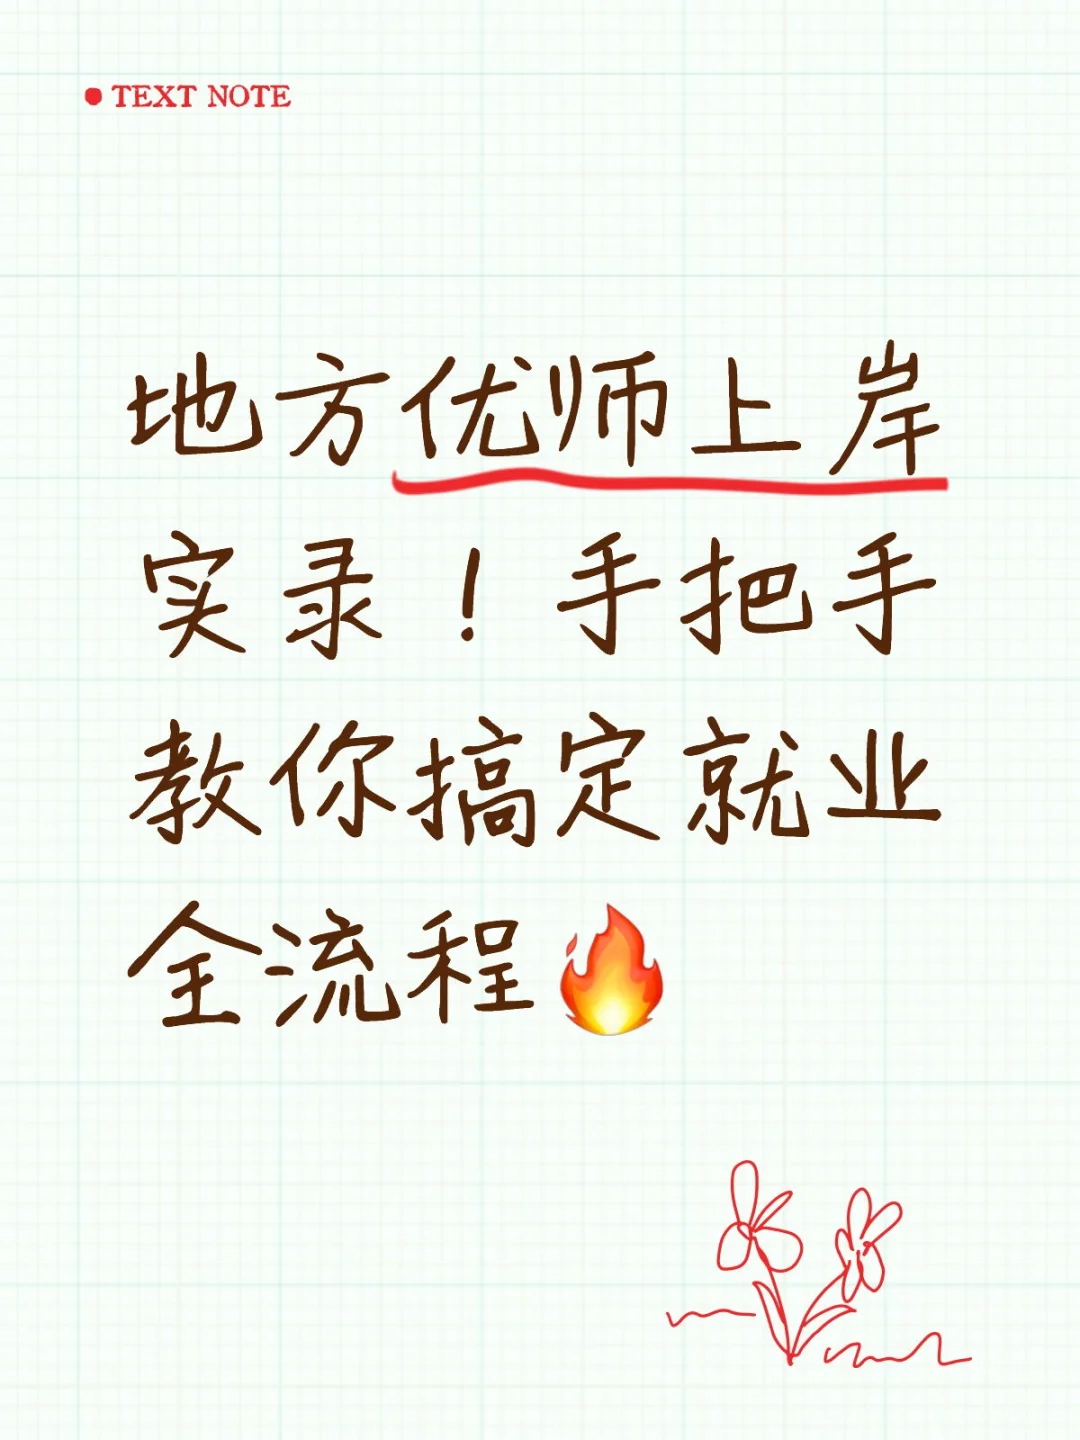 TEXT NOTE
地方优师上岸
实录！手把手
教你搞定就业
全流程🔥